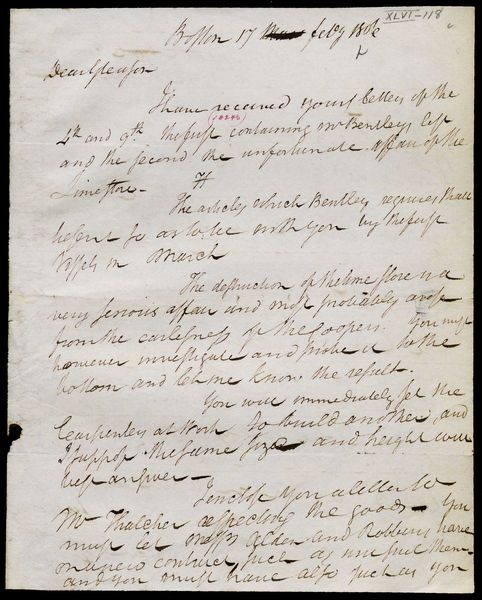 XLVI-118
Boston 17 feby 1806
Dear Gleason
I have received your letters of the
4th and 9th the first containing Mr Bentleys list
and the second the unfortunate affair of the
Limestore.
The articles which Bentley requires shall
be sent so as to be with you by the first
Vessels in March
The destruction of the lime store is a
very serious affair and most probably arose
from the carlesness of the coopers. You must
however investigate and probe it to the
bottom and let me know the result.
You will immediately set the
Carpenters at Work to build another, and
I suppose the same size and height will
best answer -
I inclose you a letter to
Mr Thatcher respecting the goods - You
must let Messrs Alden and Robbins have
new contract, such as will suit them
and you must have also such as you